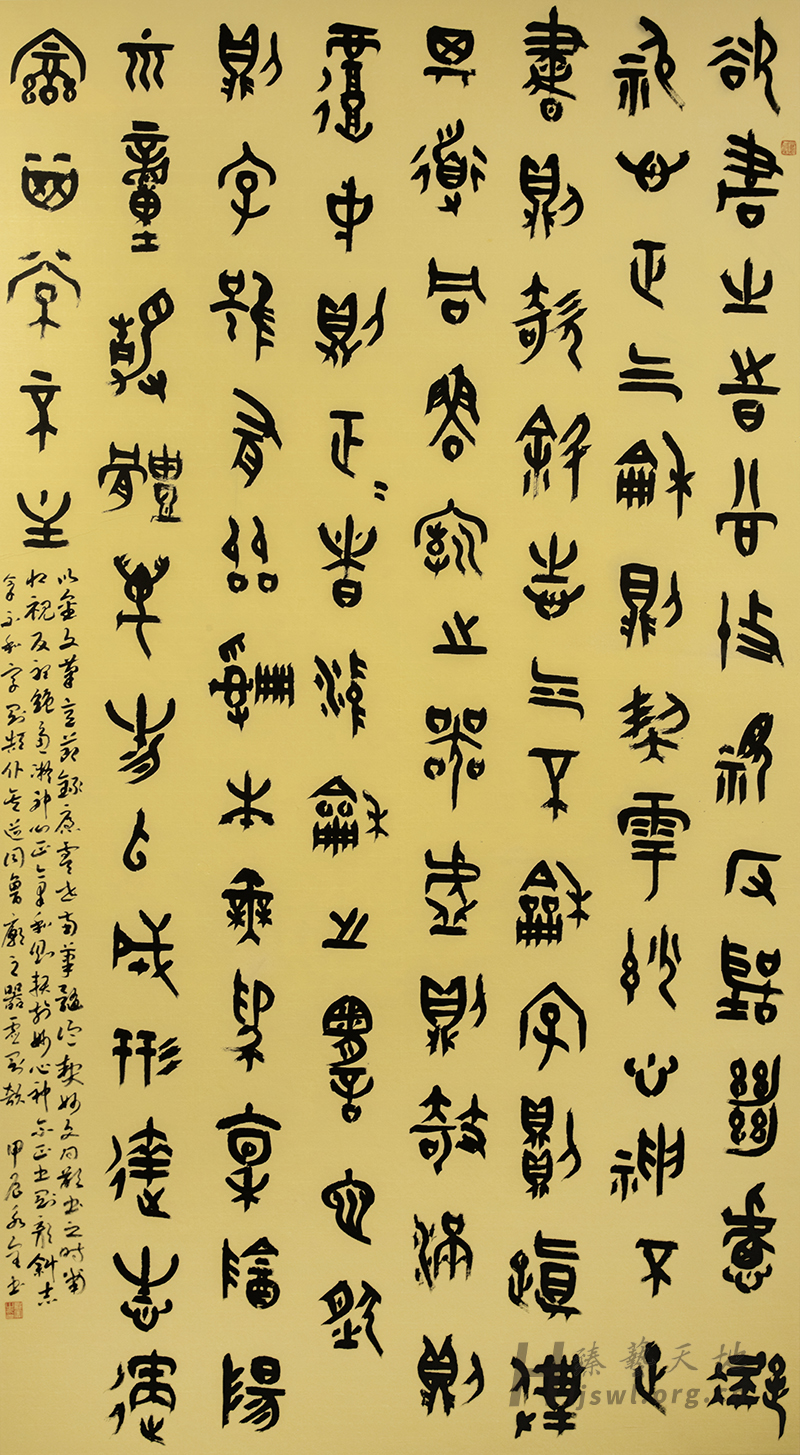 欲書之時當收視反聽絕慮凝
神心正气龢則契雩妙心神不正
書則攲斜志气不龢字則顛僕
其道同魯廟之器虛則攲滿則
覆中則正=者沖龢之謂也然
則字雖有質跡本無為稟陰陽
而動靜體萬物以成形達志通
變其常不主
以金文筆意節錄唐虞世南筆髓論契妙文句欲書之時當
收視反聽絕慮凝神心正气和則契於妙心神不正書則欹斜志
气不和字則顛仆其道同魯廟之器虛則欹 甲辰
臻藝天地
jswl.org.c